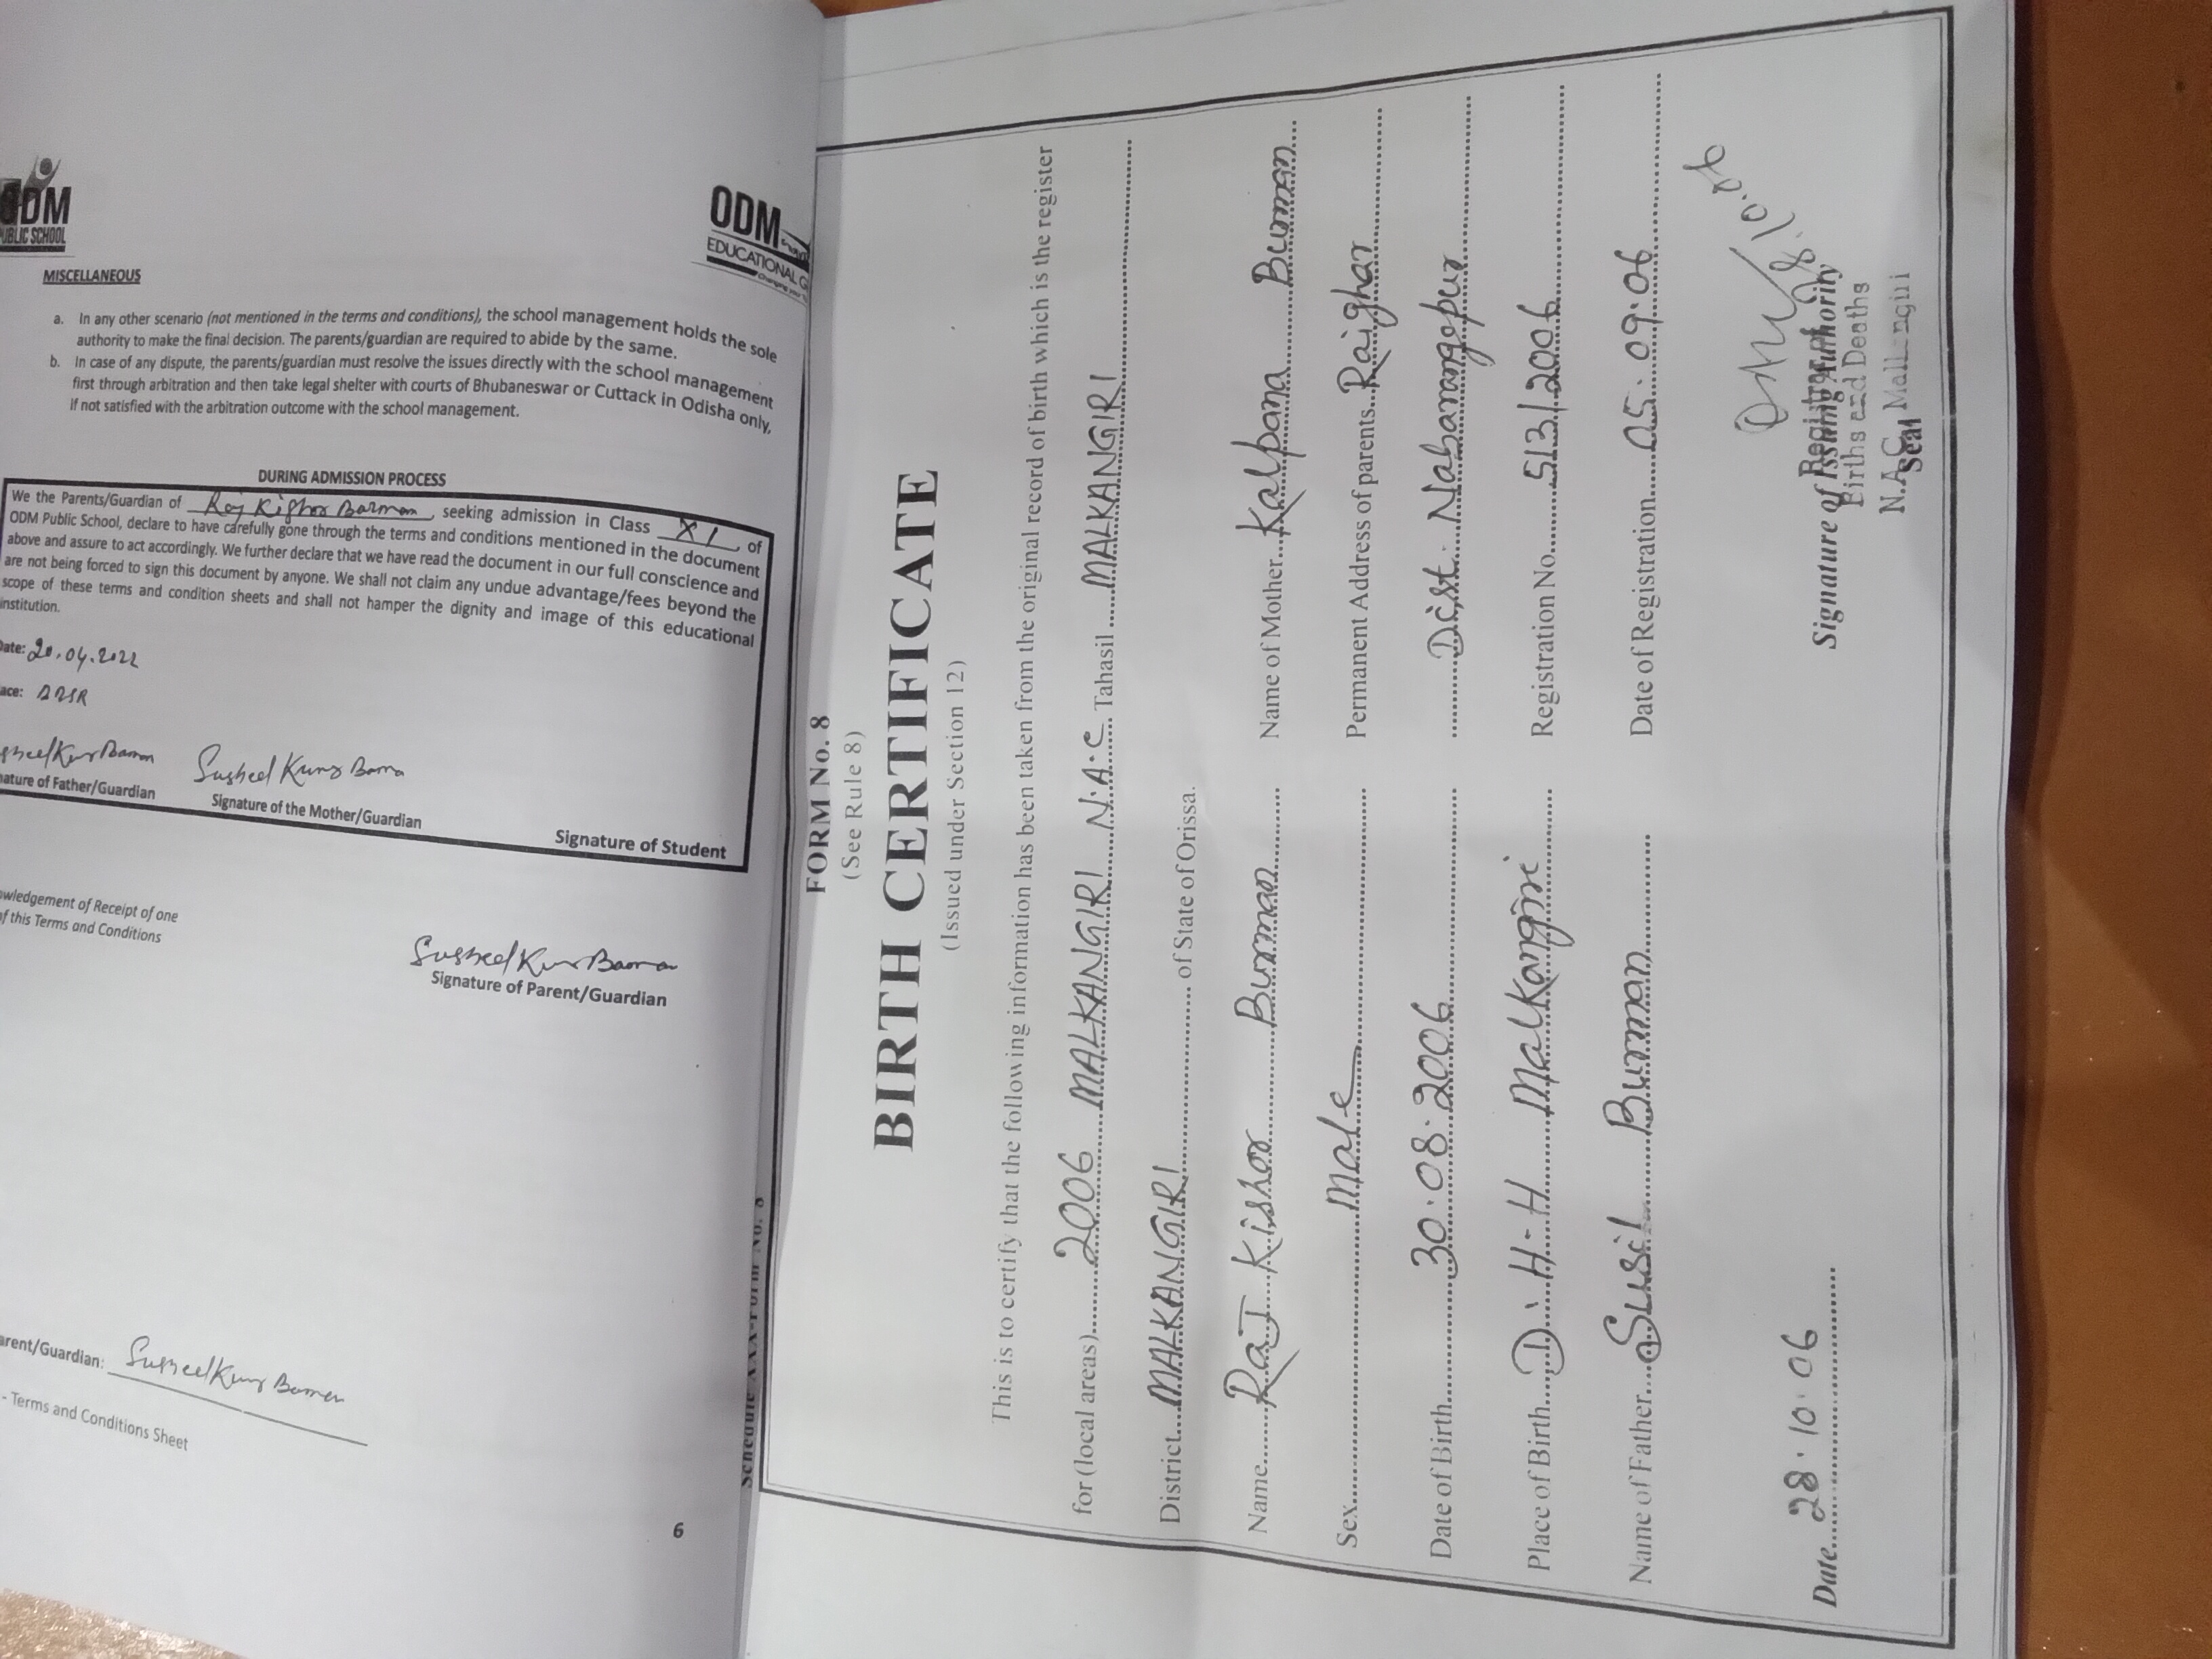 ODM
PUBLIC SCHOOL
ODM
EDUCATIONAL
MISCELLANEOUS
a. In any other scenario (not mentioned in the terms and conditions), the school management holds the sole
authority to make the final decision. The parents/guardian are required to abide by the same.
b. In case of any dispute, the parents/guardian must resolve the issues directly with the school management
first through arbitration and then take legal shelter with courts of Bhubaneswar or Cuttack in Odisha only,
If not satisfied with the arbitration outcome with the school management.
DURING ADMISSION PROCESS
We the Parents/Guardian of Raj Kishor Barman, seeking admission in Class XI, of
ODM Public School, declare to have carefully gone through the terms and conditions mentioned in the document
above and assure to act accordingly. We further declare that we have read the document in our full conscience and
are not being forced to sign this document by anyone. We shall not claim any undue advantage/fees beyond the
scope of these terms and condition sheets and shall not hamper the dignity and image of this educational
institution.
Date: 20.04.2022
ace:
Susheel Kumar Barman
ature of Father/Guardian
Signature of the Mother/Guardian
Signature of Student
owledgement of Receipt of one
of this Terms and Conditions
Susheel Kumar Barman
Signature of Parent/Guardian
arent/Guardian: Susheel Kumar Barman
- Terms and Conditions Sheet
6
FORM No. 8
(See Rule 8)
BIRTH CERTIFICATE
(Issued under Section 12)
This is to certify that the following information has been taken from the original record of birth which is the register
for (local areas) 2006 MALKANGIRI N.A.C. Tahasil MALKANGIRI
District MALKANGIRI of State of Orissa.
Name Raj Kishor Burman
Name of Mother Kalpana Burman
Sex Male
Permanent Address of parents Raighar
Date of Birth 30.08.2006
Dist. Nabarangapur
Place of Birth D.H.H Malkangiri
Registration No. 513/2006
Name of Father Susil Burman
Date of Registration 05.09.06
28.10.06
Date 28.10.06
Signature of Issuing Authority
Registrar of
Births and Deaths
N.A.C. Malkangiri
Seal